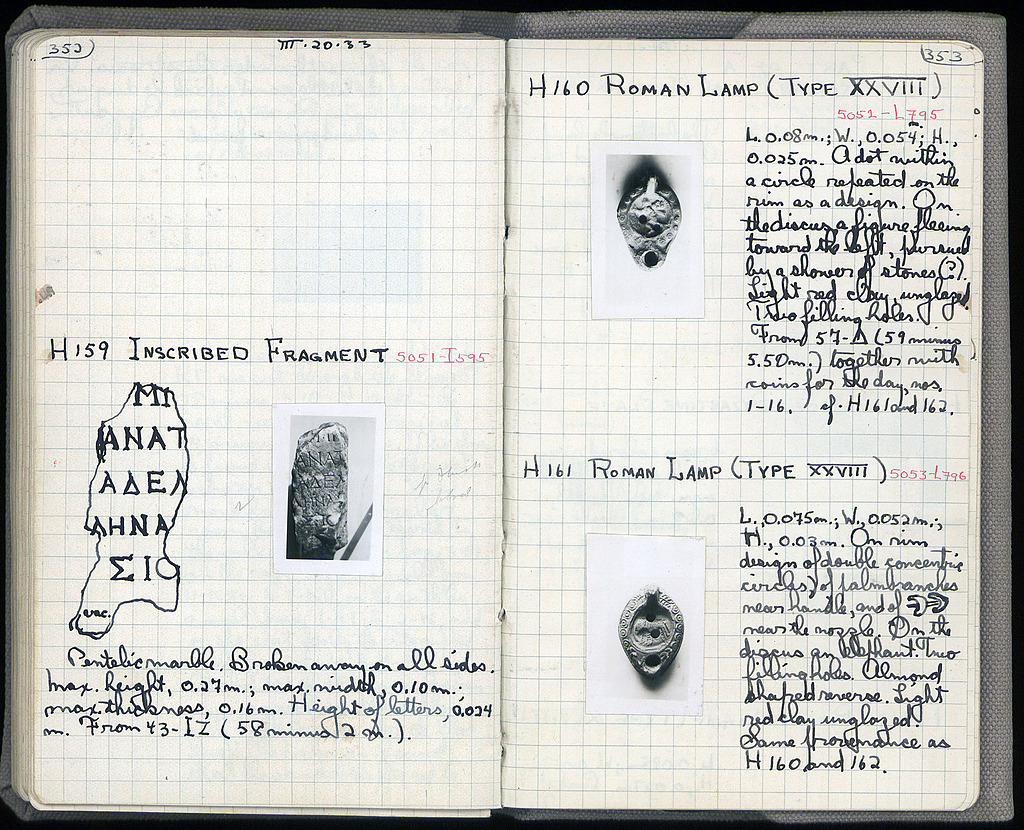 352
III·20·33
H159 INSCRIBED FRAGMENT 5051-I595
ΜΙ
ΑΝΑΤ
ΑΔΕΛ
ΛΗΝΑ
ΣΙΟ
vac.
Pentelic marble. Broken away on all sides.
Max. height, 0.27m.; max. width, 0.10m.;
max. thickness, 0.16m. Height of letters, 0.024
m. From 43-ΙΖ (58 minus 2 m.).
353
H160 ROMAN LAMP (TYPE XXVIII)
5052-L795
L. 0.08m.; W., 0.054; H.,
0.025m. A dot within
a circle repeated on the
rim as a design. On
the discus a figure fleeing
toward the left, pursued
by a shower of stones(?).
Light red clay, unglazed.
Two filling holes.
From 57-Δ (59 minus
5.50m.) together with
coins for the day, nos.
1-16. cf. H161 and 162.
H161 ROMAN LAMP (TYPE XXVIII) 5053-L796
L., 0.075m.; W., 0.052m.;
H., 0.03m. On rim
design of double concentric
circles, of palm branches
near handle, and of
near the nozzle. On the
discus an elephant. Two
filling holes. Almond
shaped reverse. Light
red clay unglazed.
Same provenance as
H160 and 162.